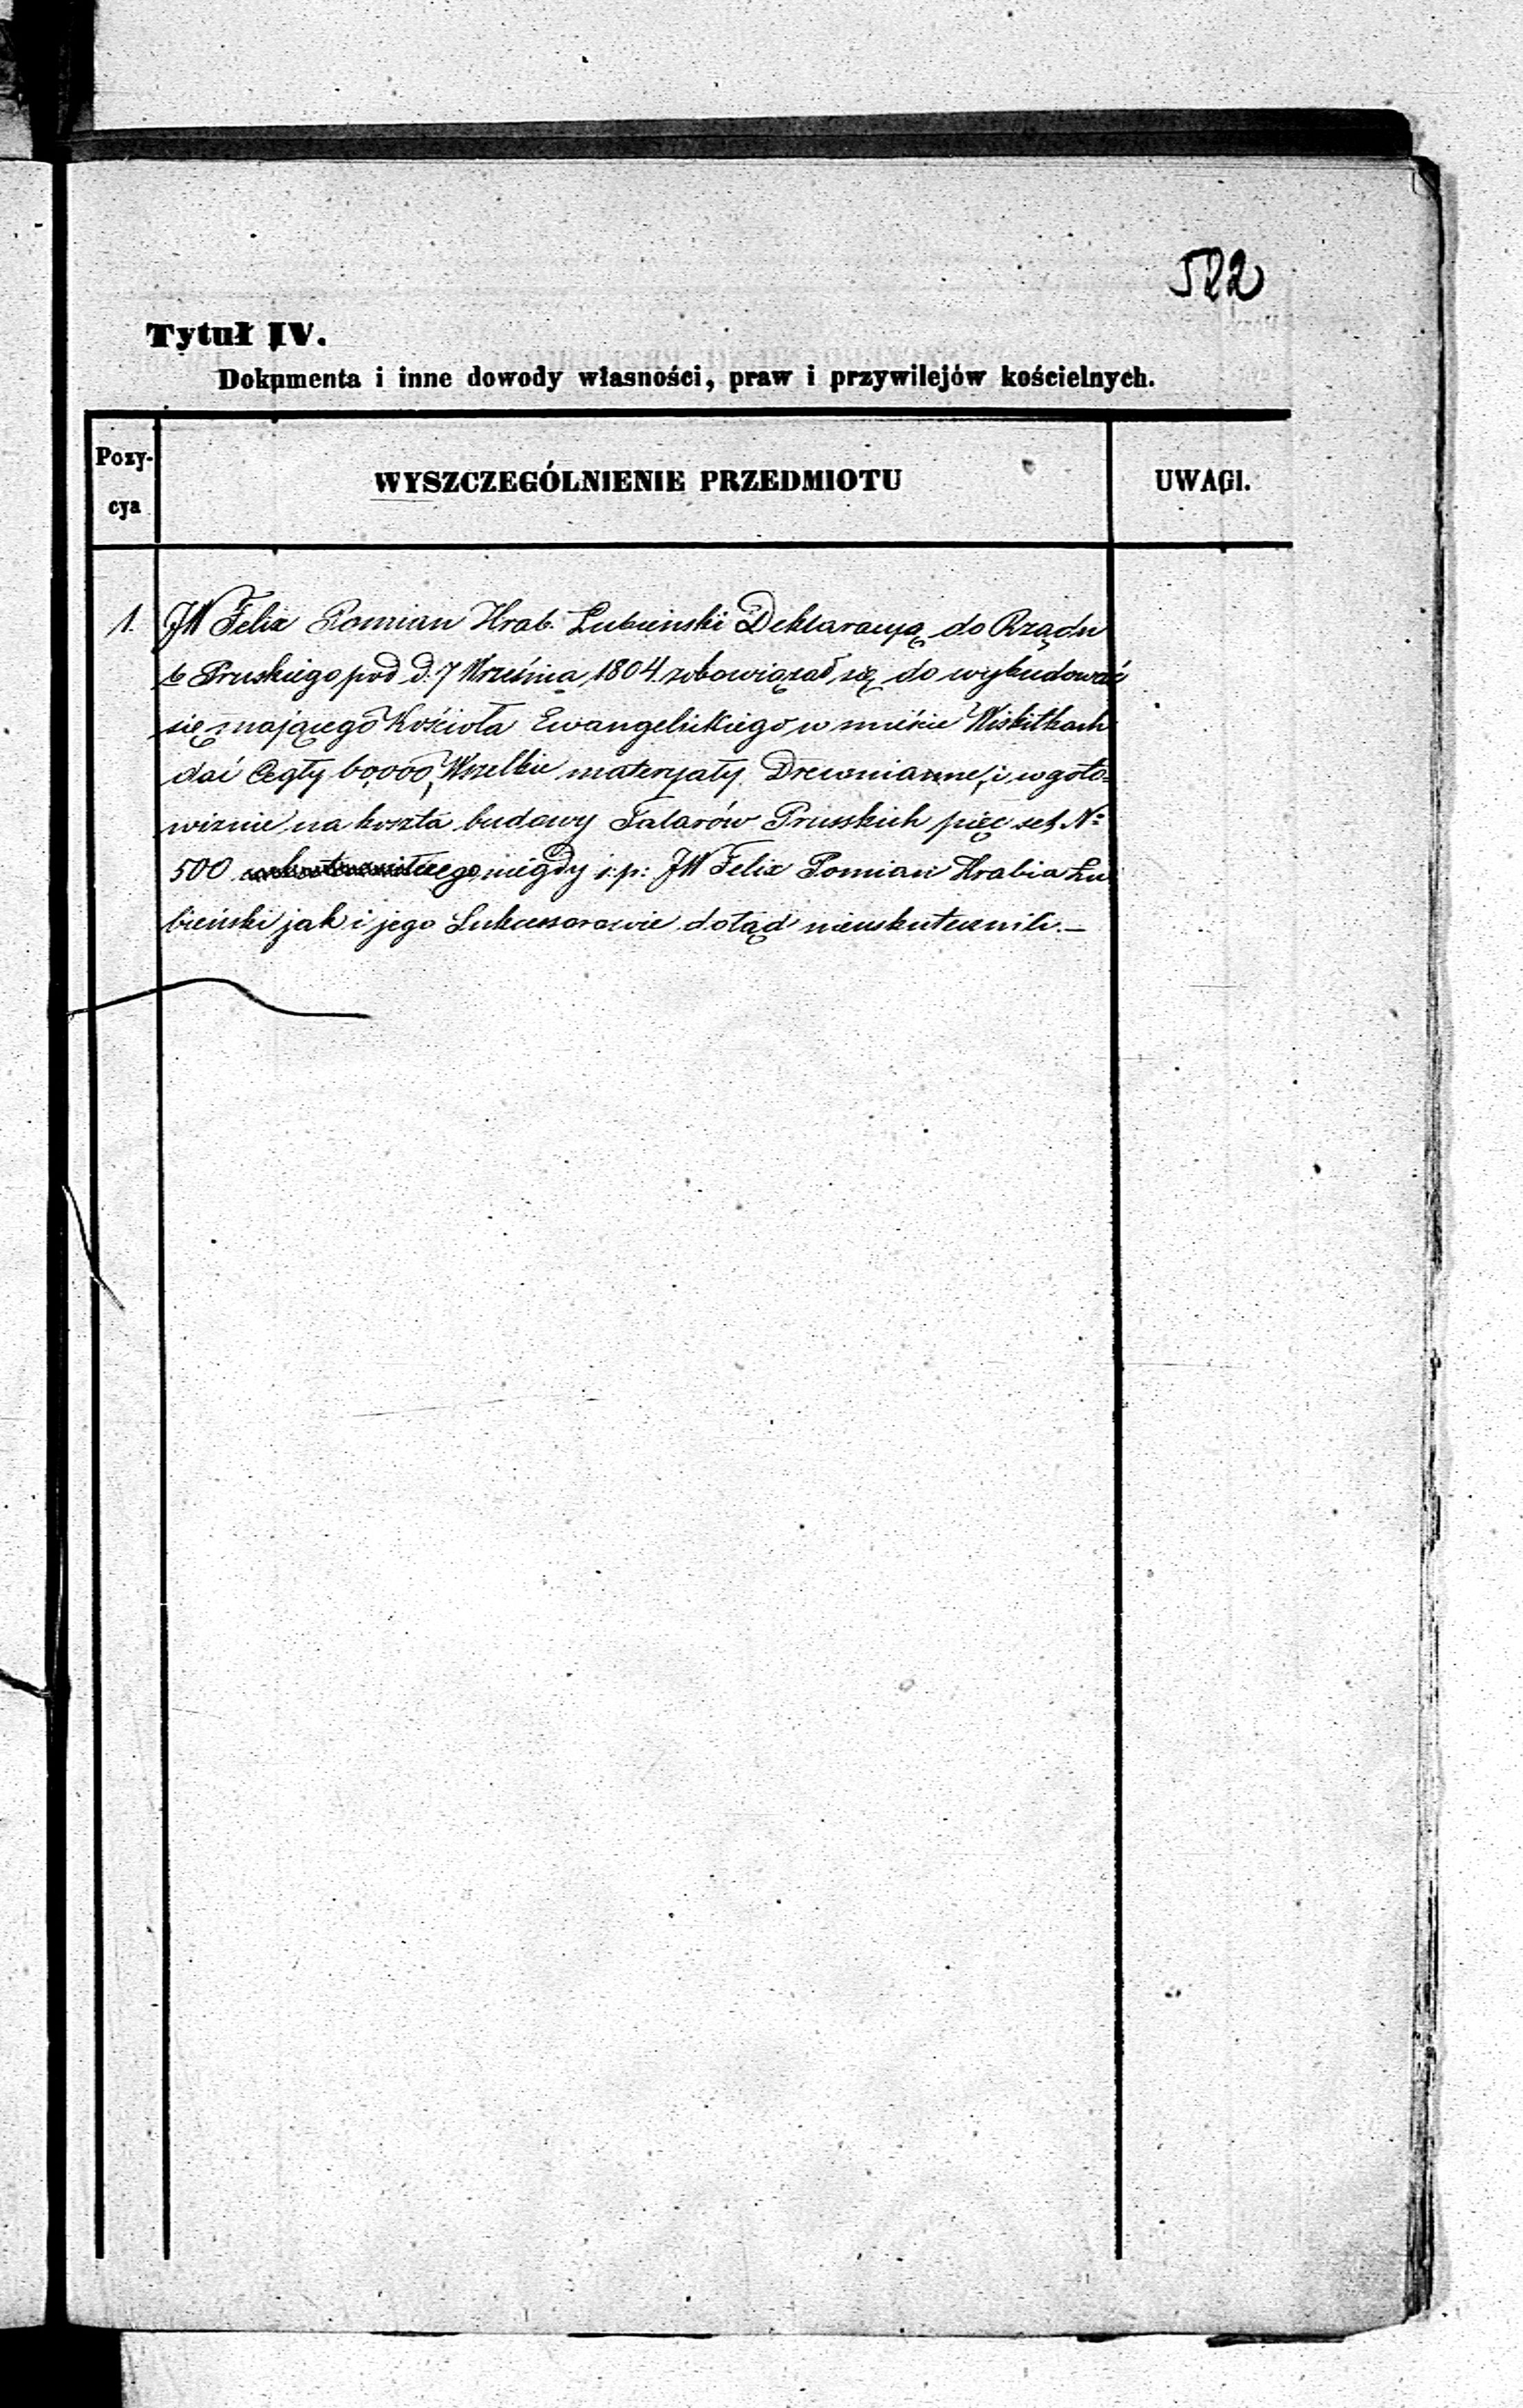 522
Tytuł IV.
Dokumenta i inne dowody własności, praw i przywilejów kościelnych.
Pozy-
cya
WYSZCZEGÓLNIENIE PRZEDMIOTU
UWAGI.
1. JW Felix Pomian Hrab. Lubieński Deklaracyą do Rządu
b Pruskiego pod d. 7 Września 1804. zobowiązał się do wybudować
się mającego Kościoła Ewangelickiego w mieście Wiskitkach
dać Cegły 60,000, Wszelkie materyały Drewnianne, i w goto-
wiznie na koszta budowy Talarów Prusskich pięc set No
500 niegdy ś:p: JW Felix Pomian Hrabia Łu
bieński jak i jego Sukcessorowie dotąd nieuskutecznili. —